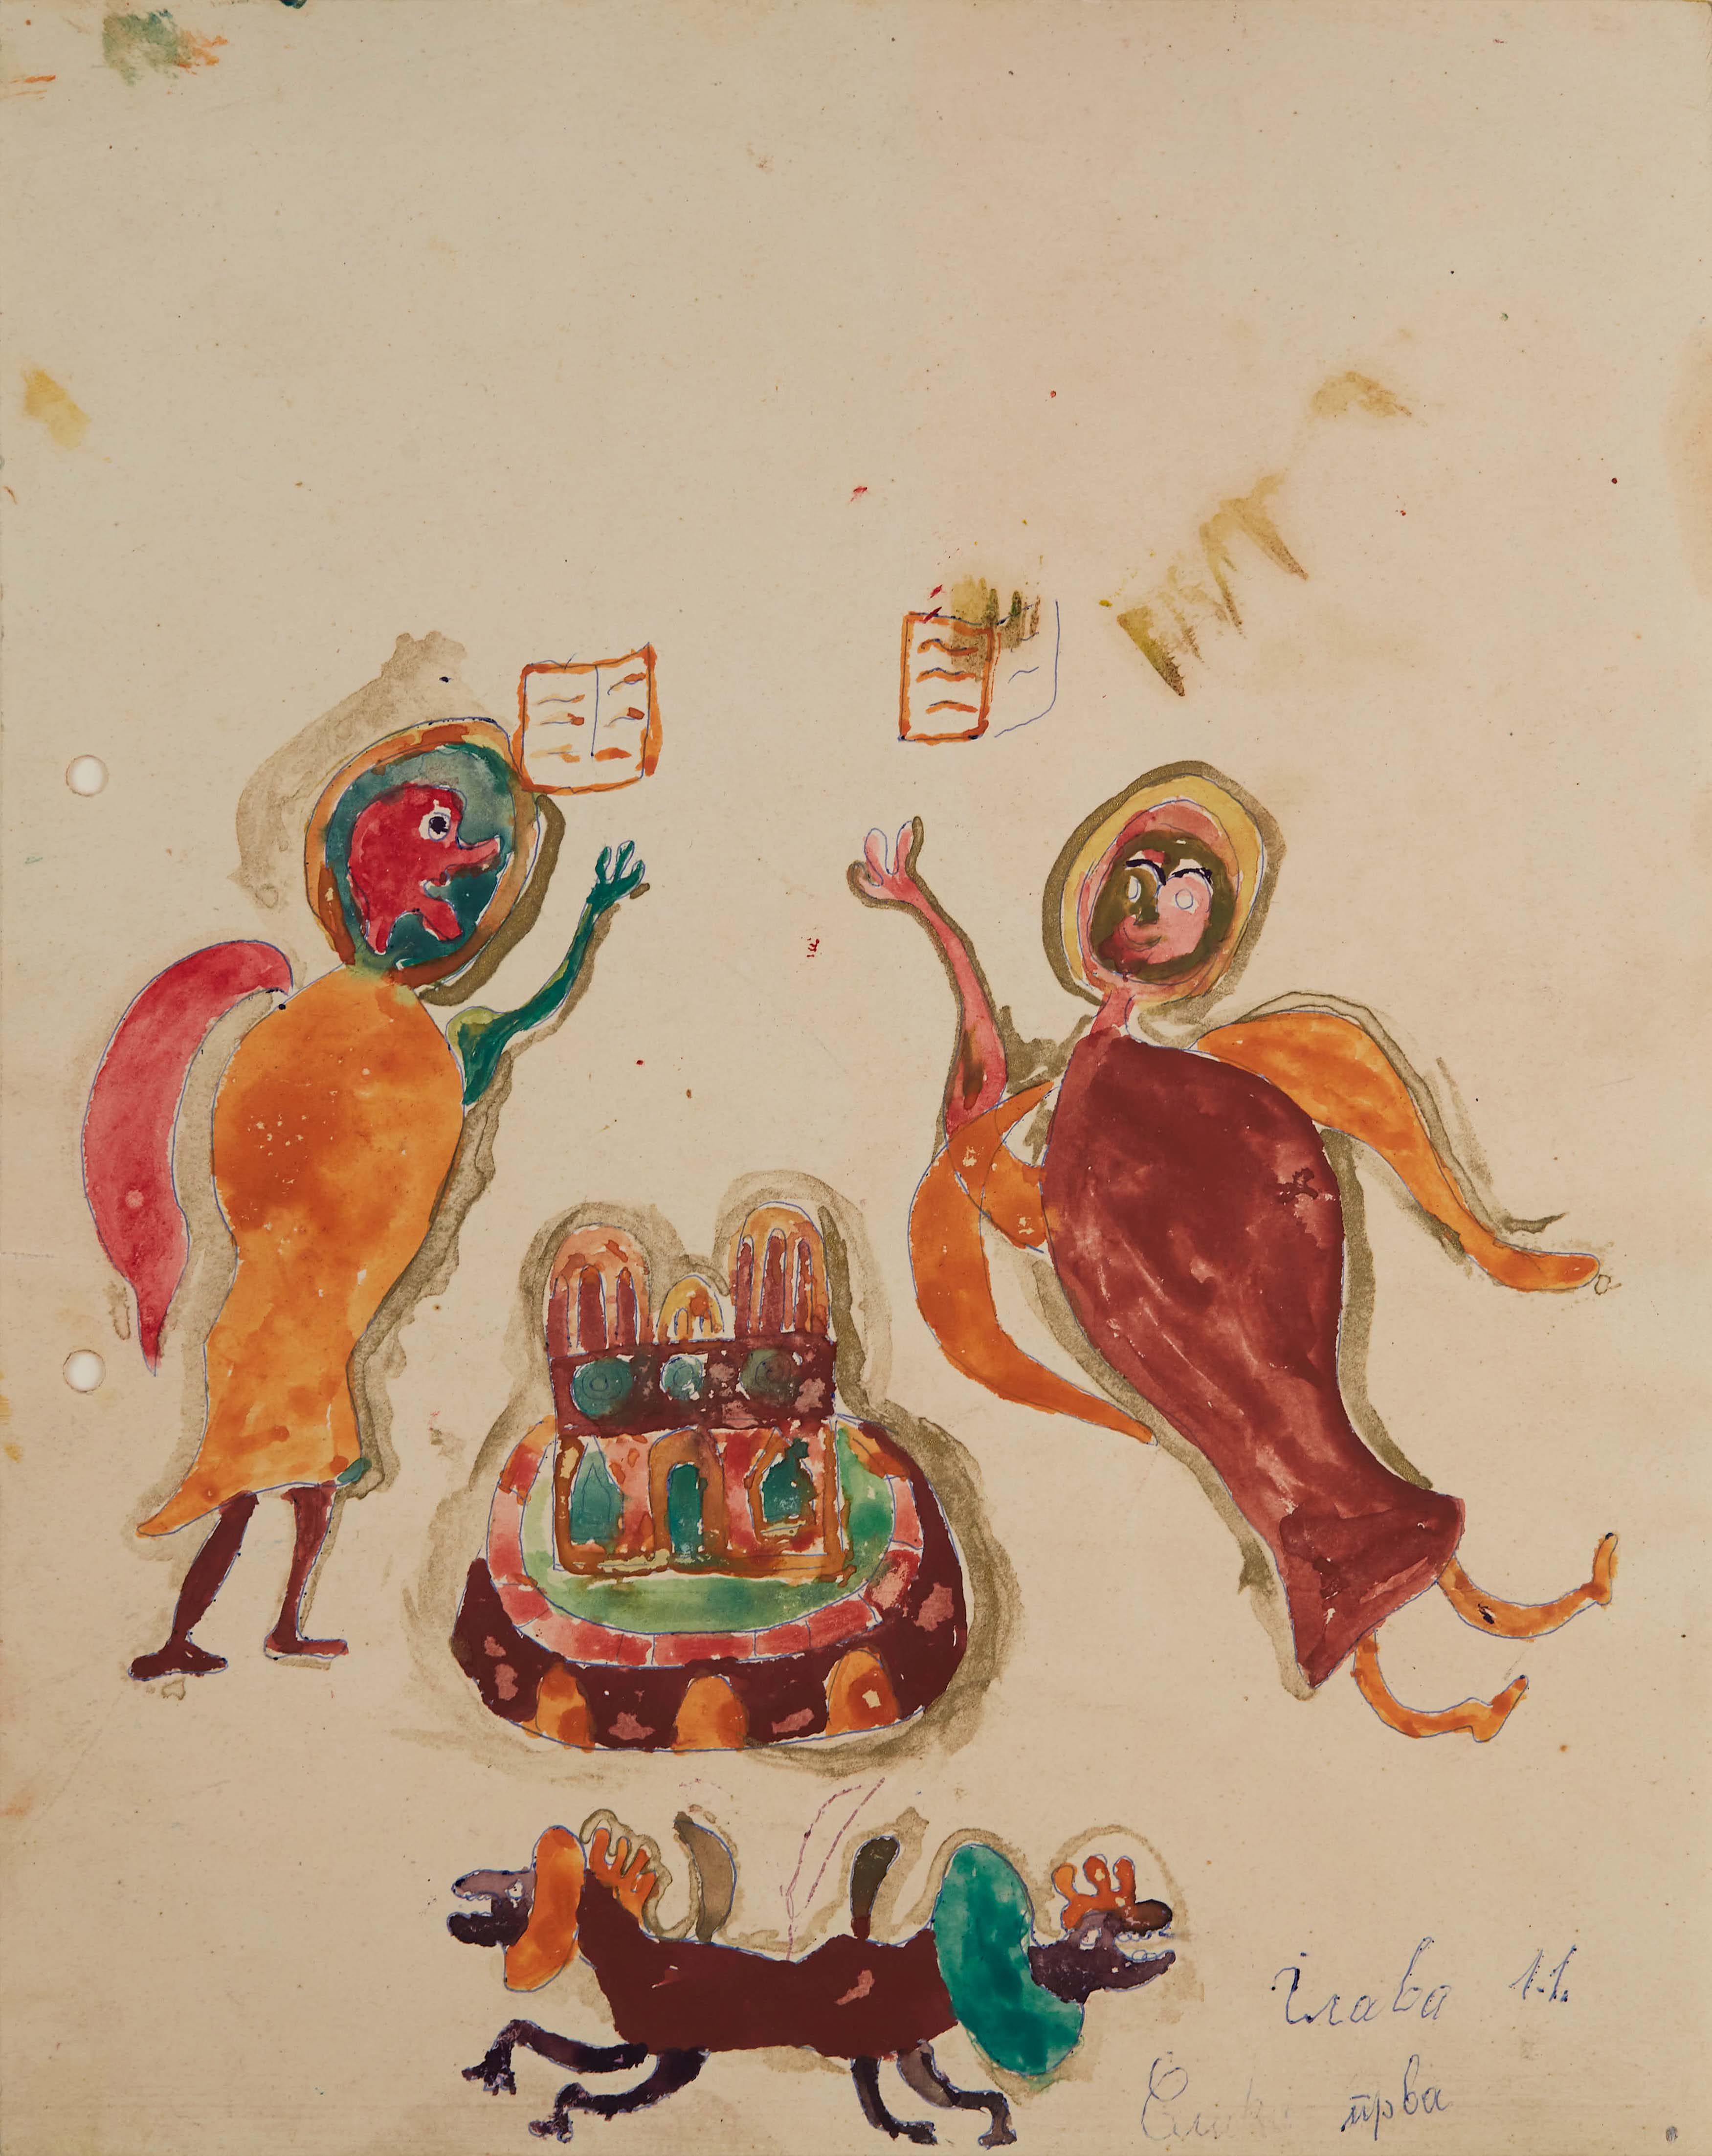 Глава 11.
Слика прва